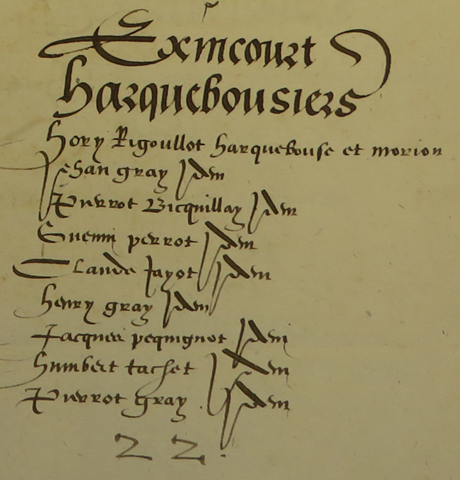 Exincourt
Harquebousiers
Hory Rigoullot harquebouse et morion
Jehan gray Idem
Pierrot Bicquillay Idem
Guenin perrot Idem
Claude Jayot Idem
Henry gray Idem
Jacques pequignot Idem
Humbert tachet Idem
Pierrot gray Idem
22.